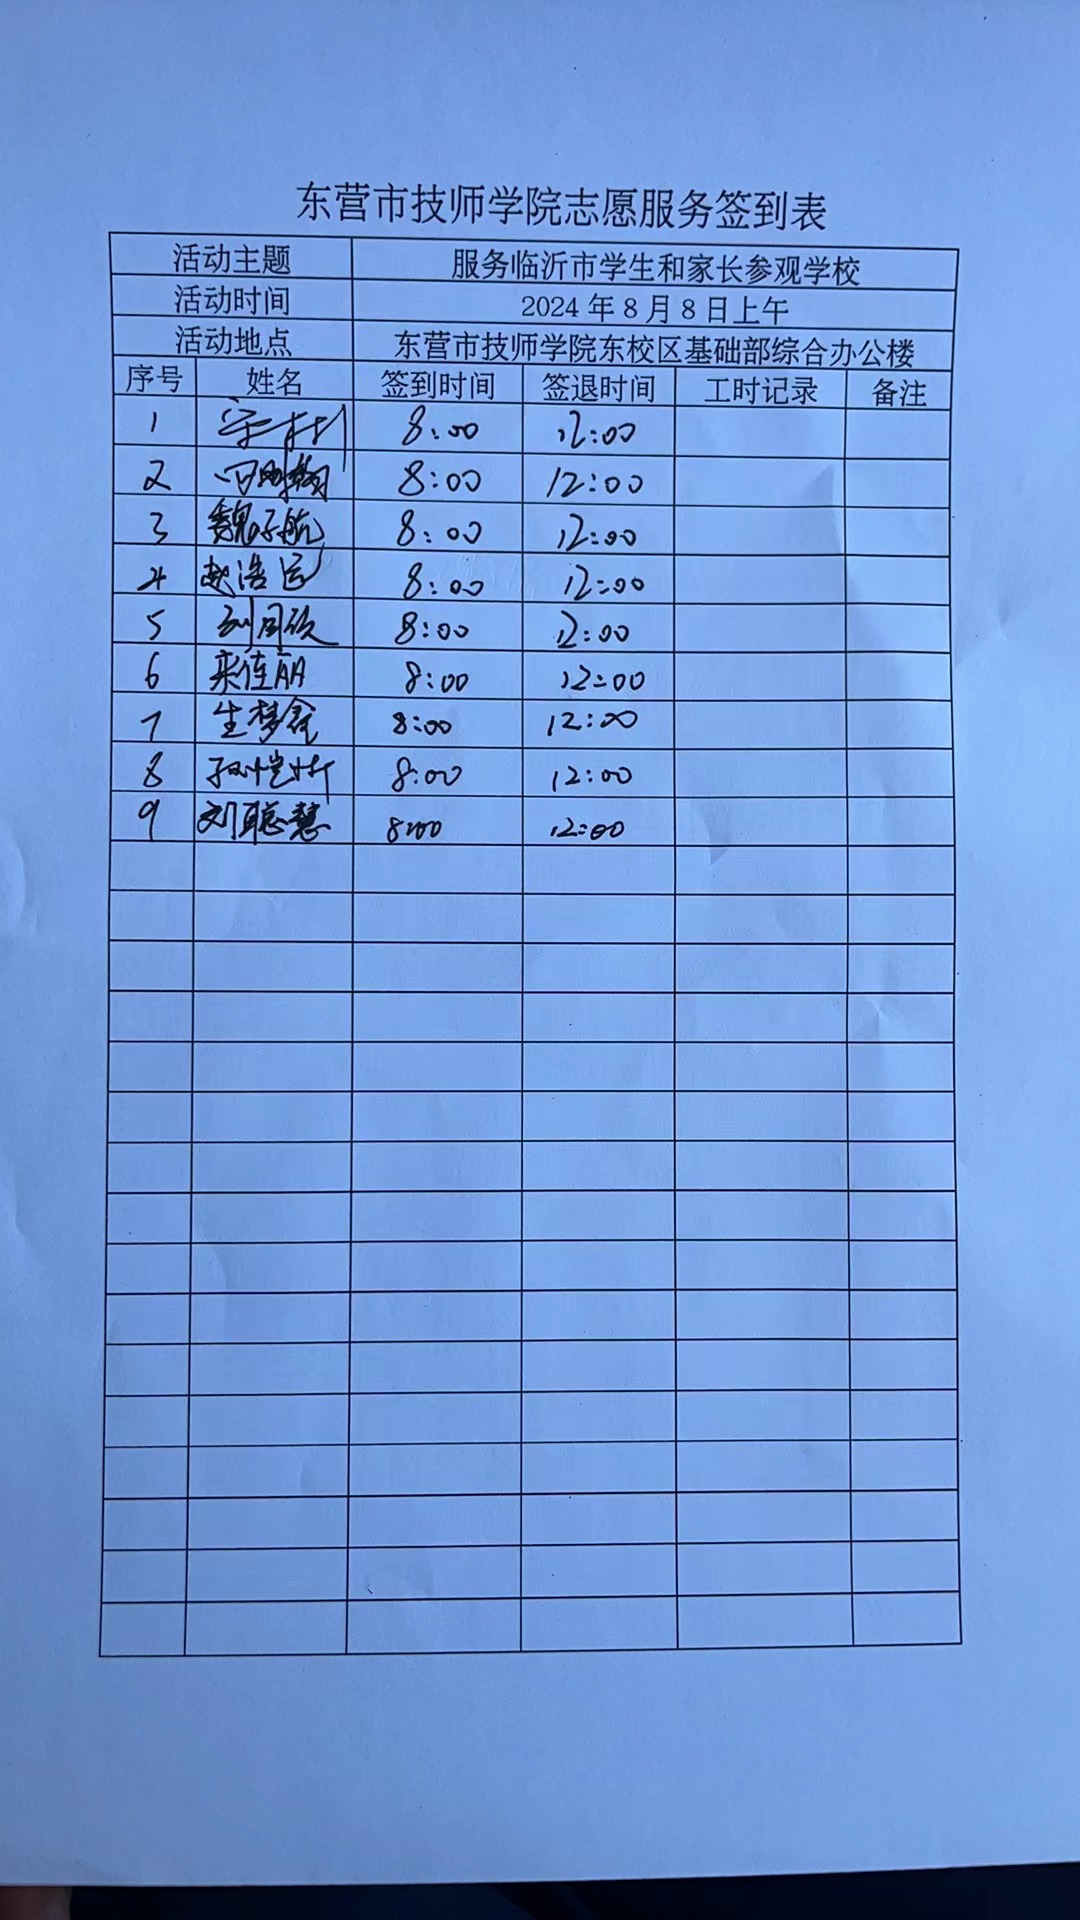 东营市技师学院志愿服务签到表
活动主题 服务临沂市学生和家长参观学校
活动时间 2024年8月8日上午
活动地点 东营市技师学院东校区基础部综合办公楼
序号 姓名 签到时间 签退时间 工时记录 备注
1 8:00 12:00
2 8:00 12:00
3 魏子航 8:00 12:00
4 赵浩 8:00 12:00
5 刘月欣 8:00 12:00
6 来佳丽 8:00 12:00
7 生梦 8:00 12:00
8 孙恺 8:00 12:00
9 刘聪慧 8:00 12:00